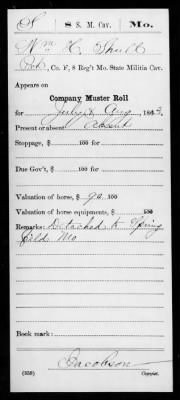 S | 8 S. M. Cav. | Mo.
Wm H. Shull
Pvt., Co. F, 8 Reg't Mo. State Militia Cav.
Appears on
Company Muster Roll
for July & Aug, 1863.
Present or absent Absent
Stoppage, $ 100 for
Due Gov't, $ 100 for
Valuation of horse, $ 90 100
Valuation of horse equipments, $ 100
Remarks: Detached to Spring
field Mo
Book mark:
Jacobson
(359) Copyist.